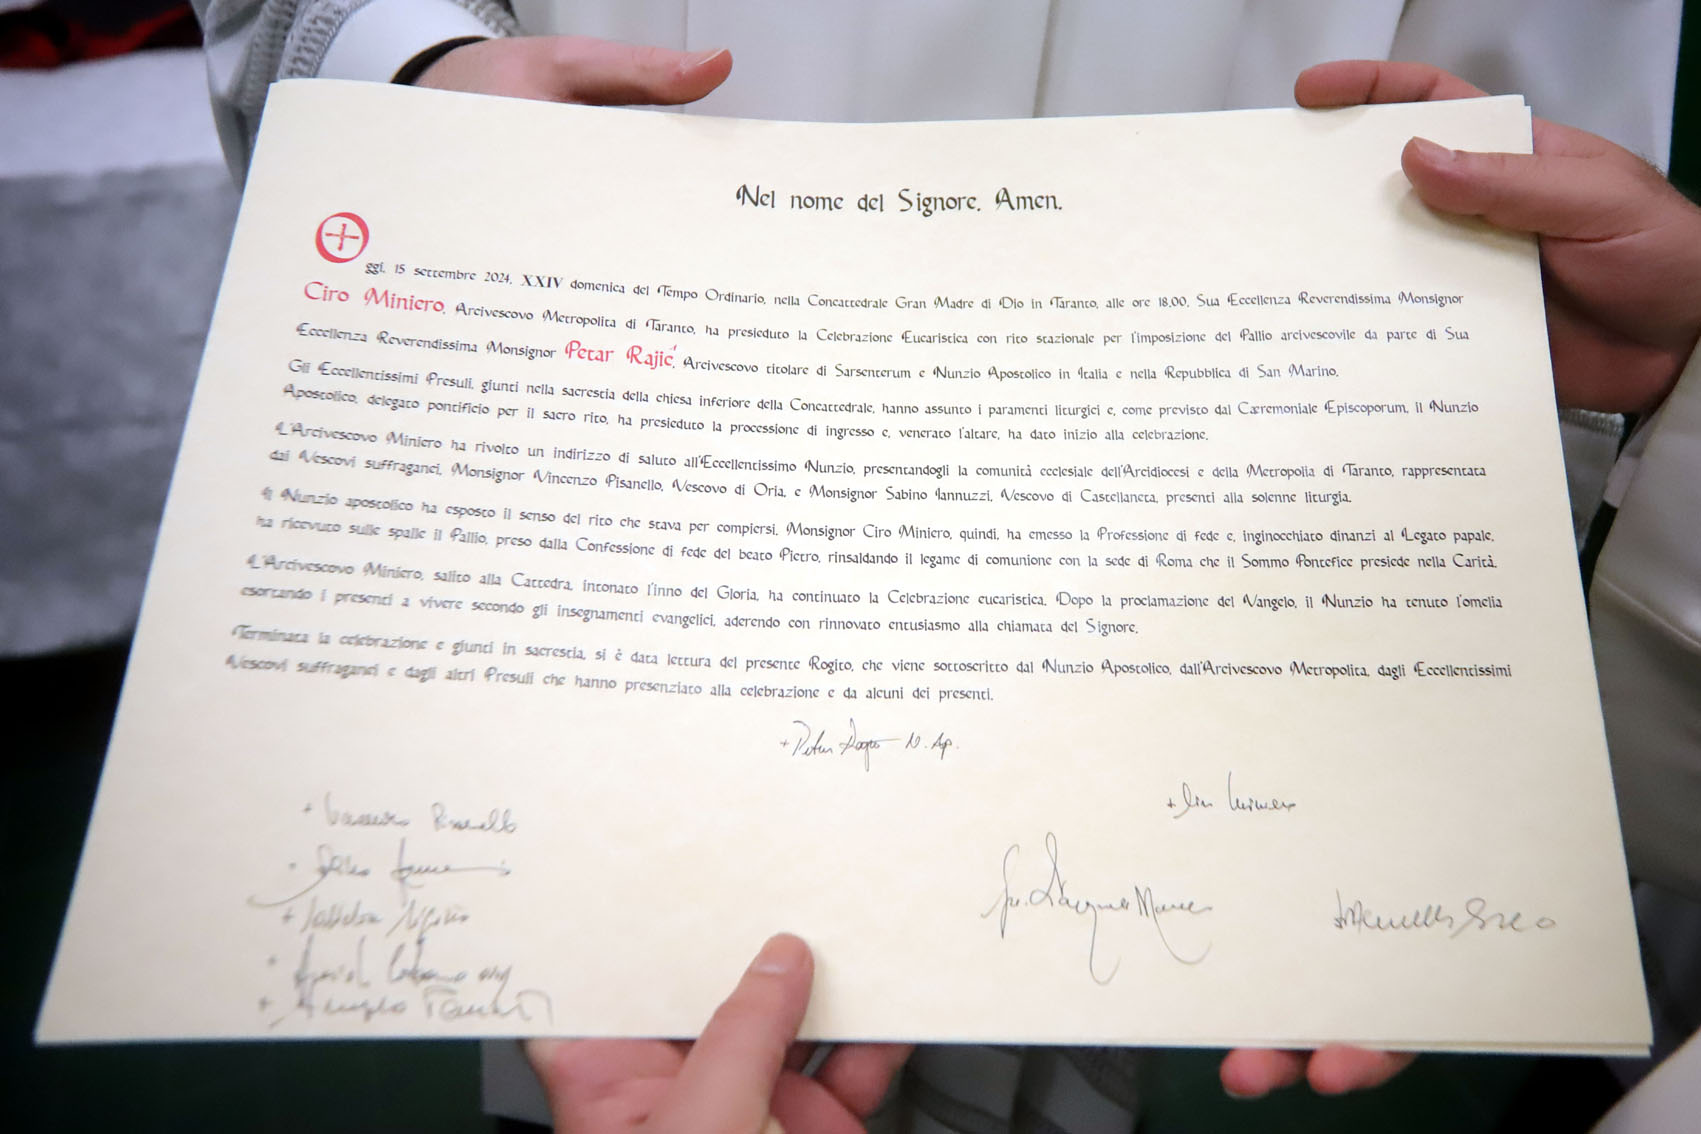 Nel nome del Signore. Amen.
Oggi, 15 settembre 2024, XXIV domenica del Tempo Ordinario, nella Concattedrale Gran Madre di Dio in Taranto, alle ore 18.00, Sua Eccellenza Reverendissima Monsignor
Ciro Miniero, Arcivescovo Metropolita di Taranto, ha presieduto la Celebrazione Eucaristica con rito stazionale per l'imposizione del Pallio arcivescovile da parte di Sua
Eccellenza Reverendissima Monsignor Petar Rajić, Arcivescovo titolare di Sarsenterum e Nunzio Apostolico in Italia e nella Repubblica di San Marino.
Gli Eccellentissimi Presuli, giunti nella sacrestia della chiesa inferiore della Concattedrale, hanno assunto i paramenti liturgici e, come previsto dal Cæremoniale Episcoporum, il Nunzio
Apostolico, delegato pontificio per il sacro rito, ha presieduto la processione di ingresso e, venerato l'altare, ha dato inizio alla celebrazione.
L'Arcivescovo Miniero ha rivolto un indirizzo di saluto all'Eccellentissimo Nunzio, presentandogli la comunità ecclesiale dell'Arcidiocesi e della Metropolia di Taranto, rappresentata
dai Vescovi suffraganei, Monsignor Vincenzo Pisanello, Vescovo di Oria, e Monsignor Sabino Iannuzzi, Vescovo di Castellaneta, presenti alla solenne liturgia.
Il Nunzio apostolico ha esposto il senso del rito che stava per compiersi. Monsignor Ciro Miniero, quindi, ha emesso la Professione di fede e, inginocchiato dinanzi al Legato papale,
ha ricevuto sulle spalle il Pallio, preso dalla Confessione di fede del beato Pietro, rinsaldando il legame di comunione con la sede di Roma che il Sommo Pontefice presiede nella Carità.
L'Arcivescovo Miniero, salito alla Cattedra, intonato l'inno del Gloria, ha continuato la Celebrazione eucaristica. Dopo la proclamazione del Vangelo, il Nunzio ha tenuto l'omelia
esortando i presenti a vivere secondo gli insegnamenti evangelici, aderendo con rinnovato entusiasmo alla chiamata del Signore.
Terminata la celebrazione e giunti in sacrestia, si è data lettura del presente Rogito, che viene sottoscritto dal Nunzio Apostolico, dall'Arcivescovo Metropolita, dagli Eccellentissimi
Vescovi suffraganei e dagli altri Presuli che hanno presenziato alla celebrazione e da alcuni dei presenti.
N. Ap.